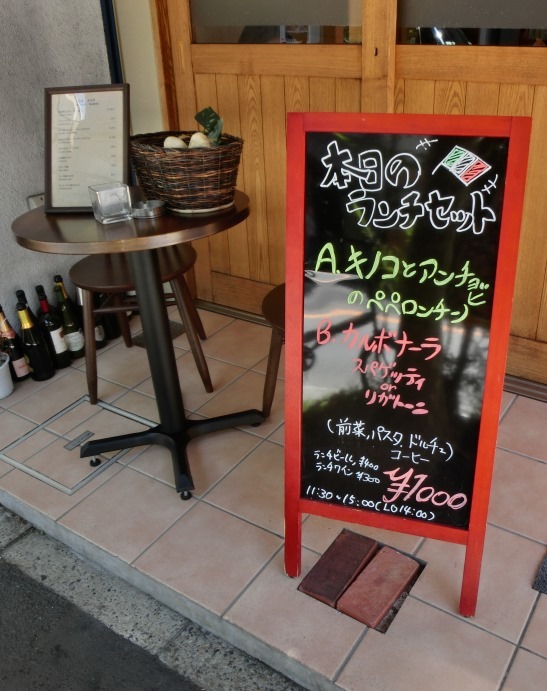 本日の
ランチセット
A.キノコとアンチョビ
のペペロンチーノ
B.カルボナーラ
スパゲッティ
or
リガトーニ
(前菜,パスタ,ドルチェ)
コーヒー
ランチビール ¥400
ランチワイン ¥300
¥1000
11:30~15:00(LO14:00)